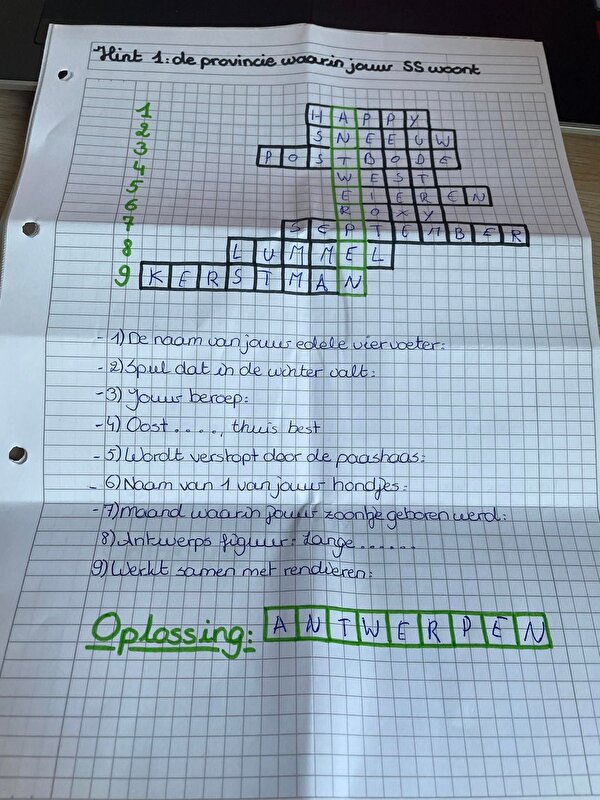 Hint 1: de provincie waarin jouw SS woont
1 HAPPY
2 SNEEUW
3 POSTBODE
4 WEST
5 EIEREN
6 ROXY
7 SEPTEMBER
8 LUMMEL
9 KERSTMAN
- 1) De naam van jouw edele viervoeter:
- 2) Spul dat in de winter valt:
- 3) Jouw beroep:
- 4) Oost ...., thuis best
- 5) Wordt verstopt door de paashaas:
- 6) Naam van 1 van jouw hondjes:
- 7) maand waarin jouw zoontje geboren werd:
8) Antwerps figuur: Lange ......
9) Werkt samen met rendieren:
Oplossing: ANTWERPEN